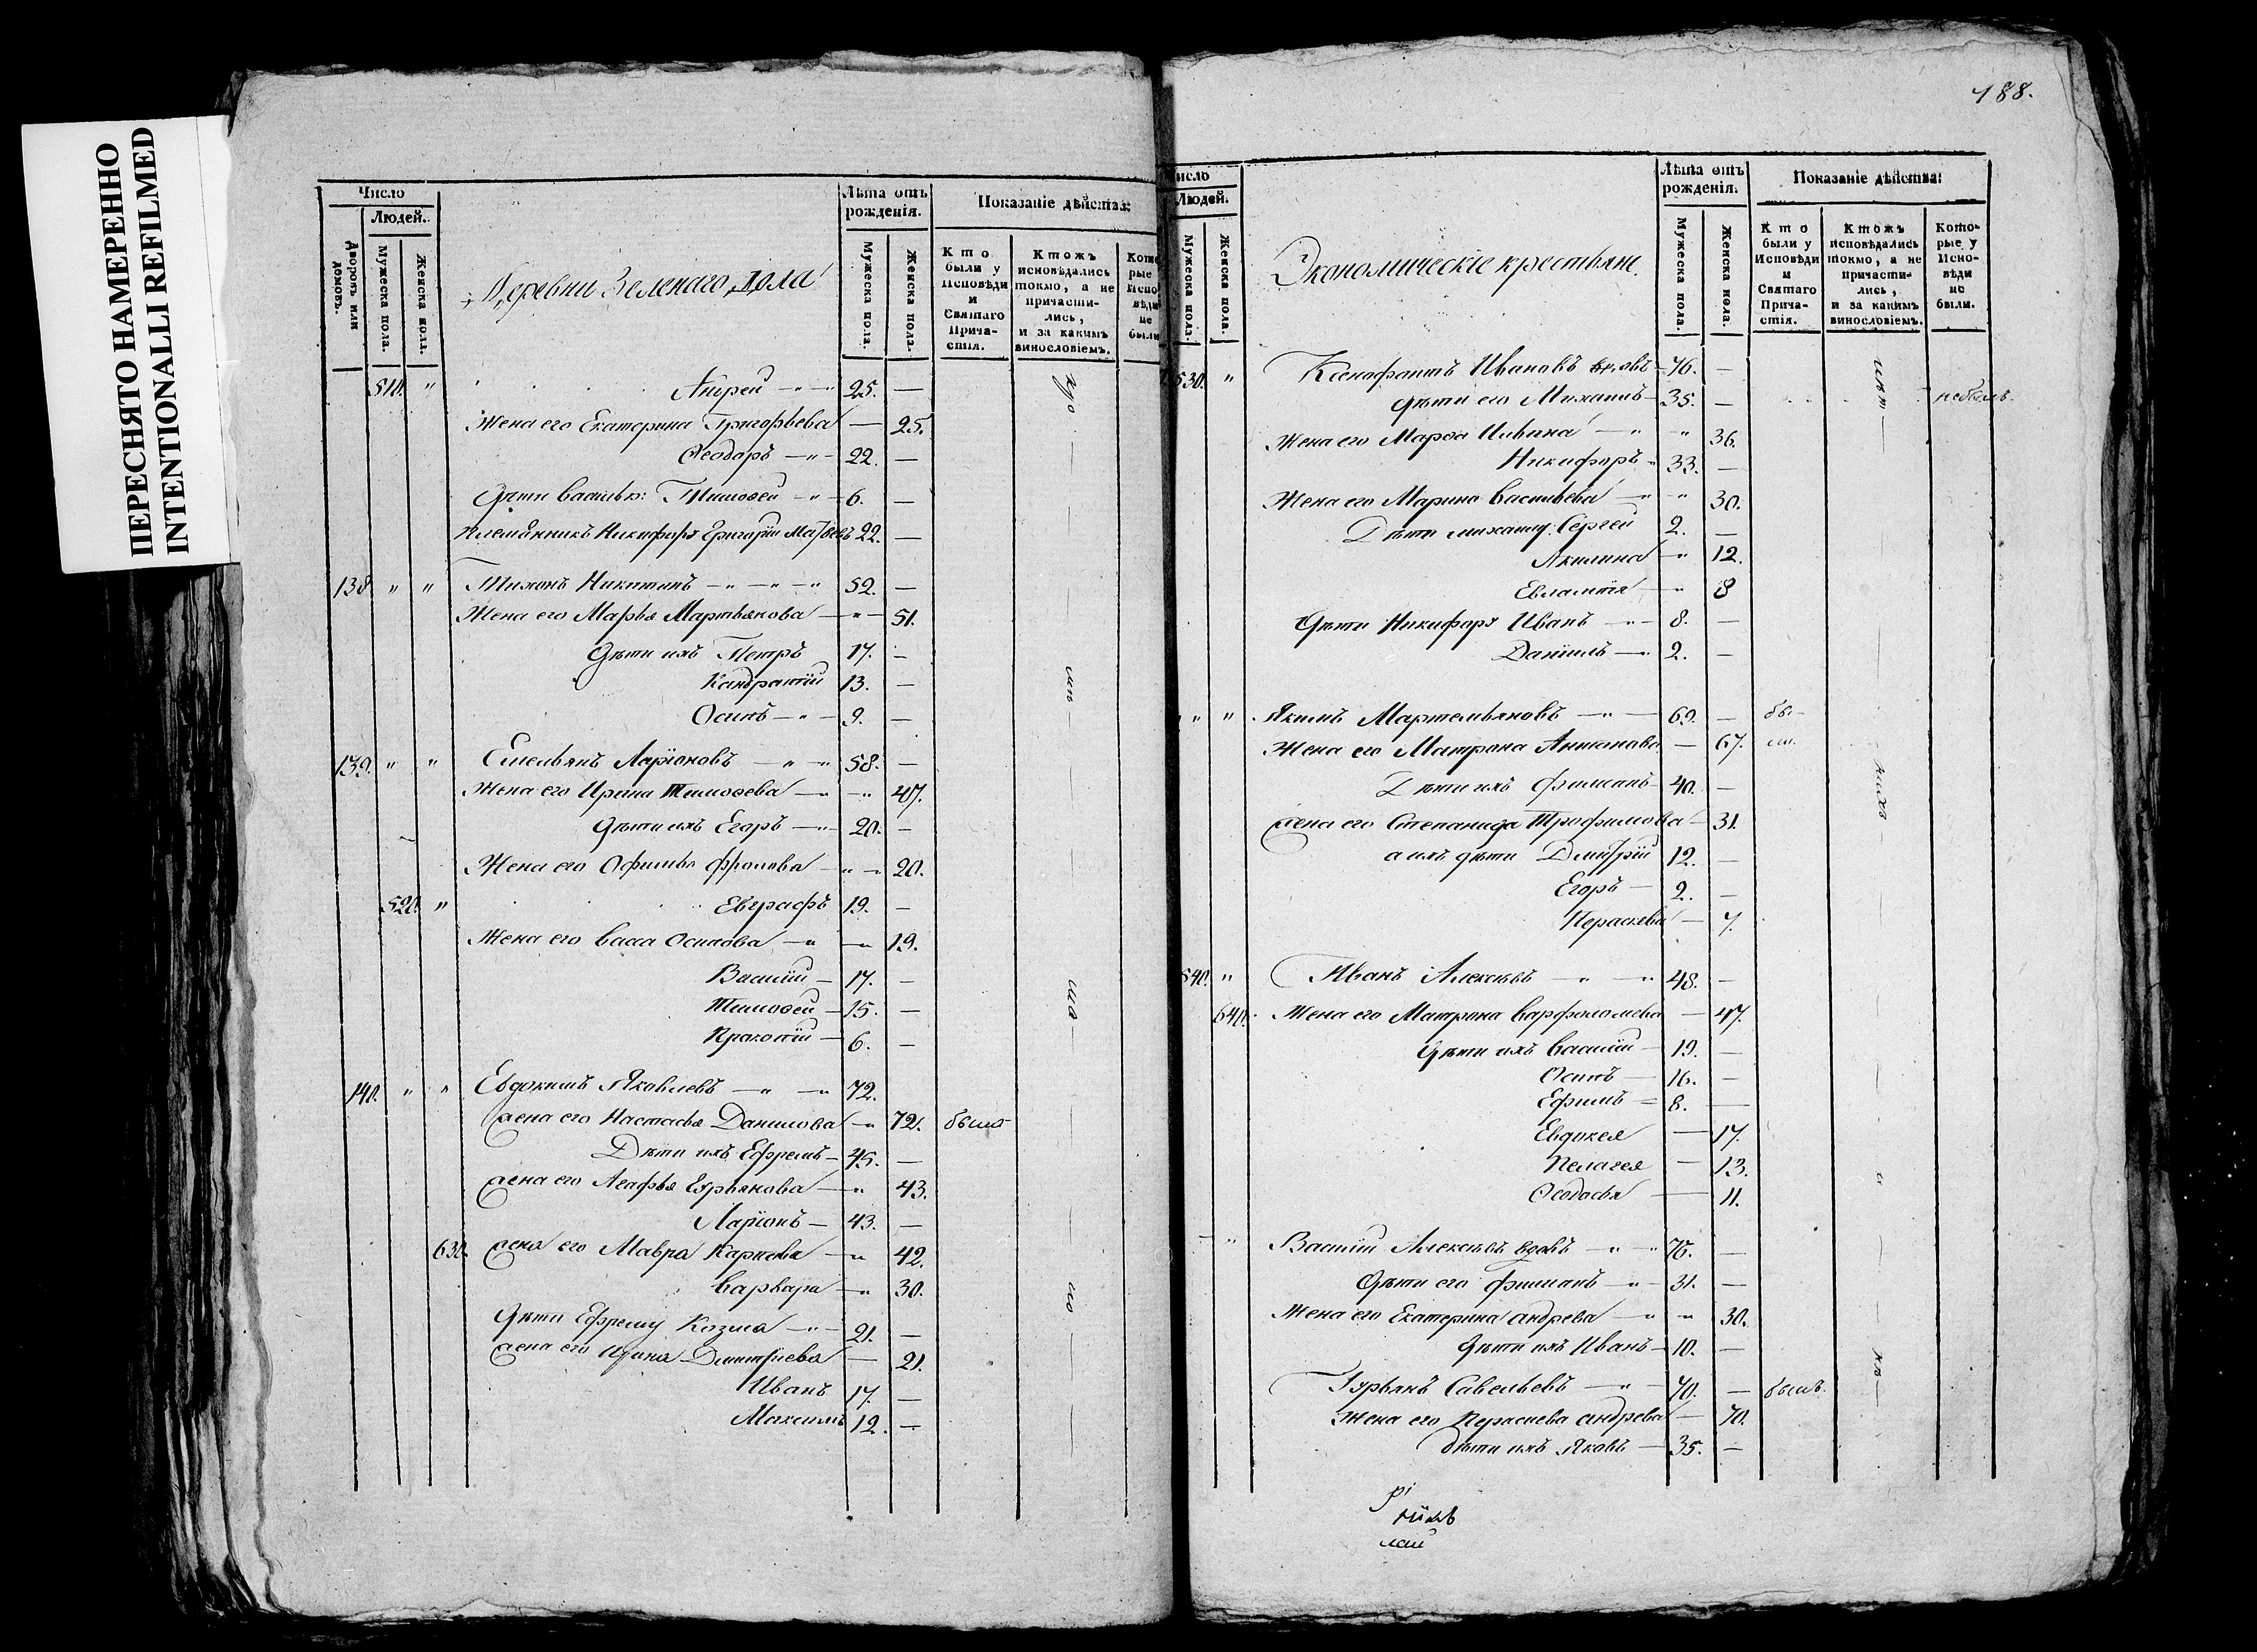 ПЕРЕСНЯТО НАМЕРЕННО
INTENTIONALLI REFILMED
Число
Людей.
Дворовъ или домовъ.
Мужеска пола.
Женска пола.
Деревни Зеленаго Дола
Лѣта отъ рожденія.
Мужеска пола.
Женска пола.
Показаніе дѣйства:
Кто были у Исповѣди и Святаго Причастія.
Ктожъ исповѣдались токмо, а не причастились, и за какимъ винословіемъ.
510. " Андрей 25. —
Жена его Екатерина Григорьева — 25.
Ѳеодоръ 22. —
Дѣти Василья: Тимоѳей 6. —
Племянникъ Никифоръ Григорій 22. —
138 " " Тихонъ Никитинъ 52. —
Жена его Марья Мартьянова — 51.
Дѣти ихъ Петръ 17. —
Кандратій 13. —
Осипъ 9. —
139. " " Емельянъ Ларіоновъ 58. —
Жена его Ирина Тимоѳева — 47.
Дѣти ихъ Егоръ 20. —
Жена его Офимья Фролова — 20.
520. " Евграфъ 19. —
Жена его Васа Осипова — 19.
Василій 17. —
Тимоѳей 15. —
Пракопій 6. —
140. " " Евдокимъ Яковлевъ 72.
Жена его Настасья Данилова — 72. была
Дѣти ихъ Ефремъ 45. —
Жена его Агафья Гурьянова — 43.
Ларіонъ 43. —
630. Жена его Мавра Карпова — 42.
Варвара — 30.
Дѣти Ефрему Козма 21. —
Жена его Ирина Дмитріева — 21.
Иванъ 17. —
Максимъ 12. —
188.
Число
Людей.
Мужеска пола.
Женска пола.
Экономическіе крестьяне.
Лѣта отъ рожденія.
Мужеска пола.
Женска пола.
Показаніе дѣйства:
Кто были у Исповѣди и Святаго Причастія.
Ктожъ исповѣдались токмо, а не причастились, и за какимъ винословіемъ.
Которые у Исповѣди не были.
530. " Ксенофантъ Ивановъ 76. —
Дѣти его Михаилъ 35. — небылъ.
Жена его Марѳа Ильина " 36.
Никифоръ 33. —
Жена его Марина Васильева " 30.
Дѣти Михаилу: Сергей 2. —
Акилина " 12.
Евлампія " 8
Дѣти Никифора Иванъ 8. —
Даніилъ 2. —
" " Якимъ Мартемьяновъ 69. —
Жена его Матрона Антонова — 67.
Дѣти ихъ Филипъ 40. —
Жена его Степанида Трофимова — 31.
а ихъ дѣти Дмитрій 12. —
Егоръ 2. —
Пераскева — 7.
540. " Иванъ Алексѣевъ 48. —
640. Жена его Матрона Варфоломева — 47.
Дѣти ихъ Василій 19. —
Осипъ 16. —
Ефимъ 8. —
Евдокея — 17.
Пелагея — 13.
Ѳеодосья — 11.
Василій Алексѣевъ вдовъ 76. —
Дѣти его Филипъ 31. —
Жена его Екатерина Андрева " 30.
Дѣти ихъ Иванъ 10. —
Гурьянъ Савельевъ 70. — былъ.
Жена его Пераскева Андрева — 70.
Дѣти ихъ Яковъ 35. —